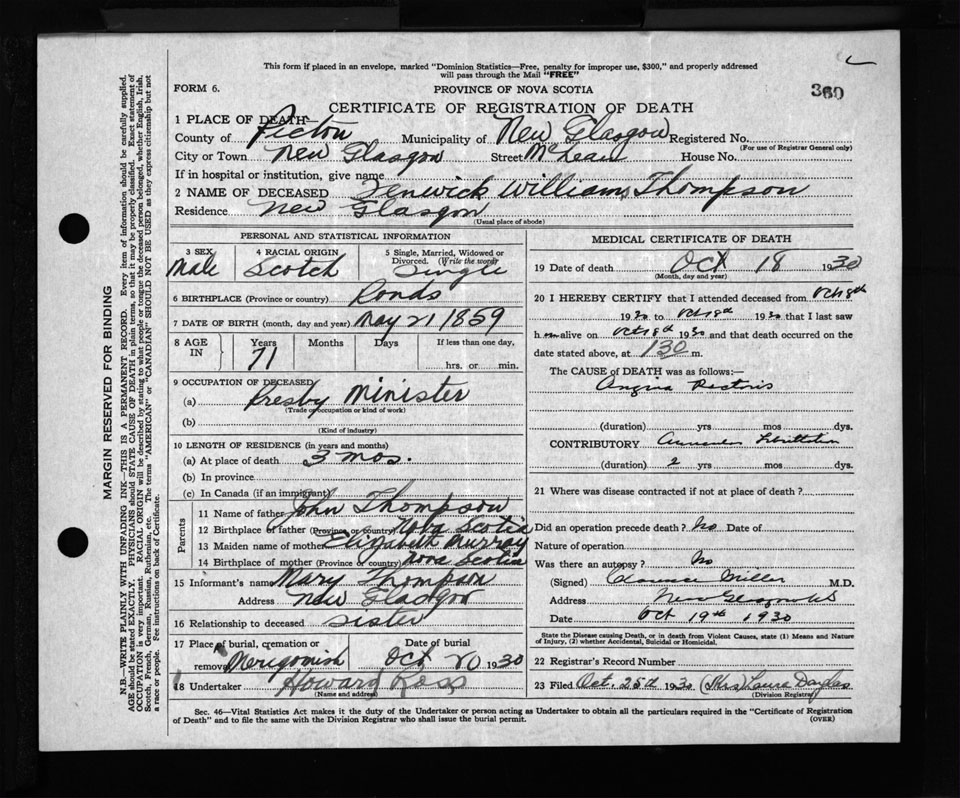 This form if placed in an envelope, marked "Dominion Statistics—Free, penalty for improper use, $300," and properly addressed
will pass through the Mail "FREE"
FORM 6.
PROVINCE OF NOVA SCOTIA
360
CERTIFICATE OF REGISTRATION OF DEATH
1 PLACE OF DEATH
County of Picton Municipality of New Glasgow Registered No.
(For use of Registrar General only)
City or Town New Glasgow Street McLean House No.
If in hospital or institution, give name
2 NAME OF DECEASED Fenwick Williams Thompson
Residence New Glasgow
(Usual place of abode)
MARGIN RESERVED FOR BINDING
N.B.—WRITE PLAINLY WITH UNFADING INK—THIS IS A PERMANENT RECORD. Every item of information should be carefully supplied.
AGE should be stated EXACTLY. PHYSICIANS should STATE CAUSE OF DEATH in plain terms, so that it may be properly classified. Exact statement of
OCCUPATION is very important. RACIAL ORIGIN will be described by stating to what people or tongue the deceased person belonged, whether English, Irish,
Scotch, French, German, Russian, Ruthenian, etc. The terms "AMERICAN" or "CANADIAN" SHOULD NOT BE USED as they express citizenship but not
a race or people. Fee instructions on back of Certificate.
PERSONAL AND STATISTICAL INFORMATION
3 SEX
Male
4 RACIAL ORIGIN
Scotch
5 Single, Married, Widowed or
Divorced. (Write the word)
Single
6 BIRTHPLACE (Province or country) Ponds
7 DATE OF BIRTH (month, day and year) May 21 1859
8 AGE
IN
Years
71
Months
Days
If less than one day,
hrs. or min.
9 OCCUPATION OF DECEASED
(a) Presby Minister
(Trade or occupation or kind of work)
(b)
(Kind of industry)
10 LENGTH OF RESIDENCE (in years and months)
(a) At place of death 3 mos.
(b) In province
(c) In Canada (if an immigrant)
Parents
11 Name of father John Thompson
12 Birthplace of father (Province or country) Nova Scotia
13 Maiden name of mother Elizabeth Murray
14 Birthplace of mother (Province or country) Nova Scotia
15 Informant's name Mary Thompson
Address New Glasgow
16 Relationship to deceased Sister
17 Place of burial, cremation or
removal Merigomish
Date of burial
Oct 20 1930
18 Undertaker Howard Ross
(Name and address)
MEDICAL CERTIFICATE OF DEATH
19 Date of death Oct 18 1930
(Month, day and year)
20 I HEREBY CERTIFY that I attended deceased from Oct 18th
1930 to Oct 18th 1930 that I last saw
him alive on Oct 18th 1930 and that death occurred on the
date stated above, at 130 m.
The CAUSE OF DEATH was as follows:—
Angina Pectoris
(duration) yrs mos dys.
CONTRIBUTORY
(duration) 2 yrs mos dys.
21 Where was disease contracted if not at place of death?
Did an operation precede death? No Date of
Nature of operation
Was there an autopsy? No
(Signed) Clarence Miller M.D.
Address New Glasgow NS
Date Oct 19th 1930
State the Disease causing Death, or in death from Violent Causes, state (1) Means and Nature
of Injury, (2) whether Accidental, Suicidal or Homicidal.
22 Registrar's Record Number
23 Filed Oct. 25th 1930 (Mrs) Laura Douglas
(Division Registrar)
Sec. 46—Vital Statistics Act makes it the duty of the Undertaker or person acting as Undertaker to obtain all the particulars required in the "Certificate of Registration
of Death" and to file the same with the Division Registrar who shall issue the burial permit.
(OVER)